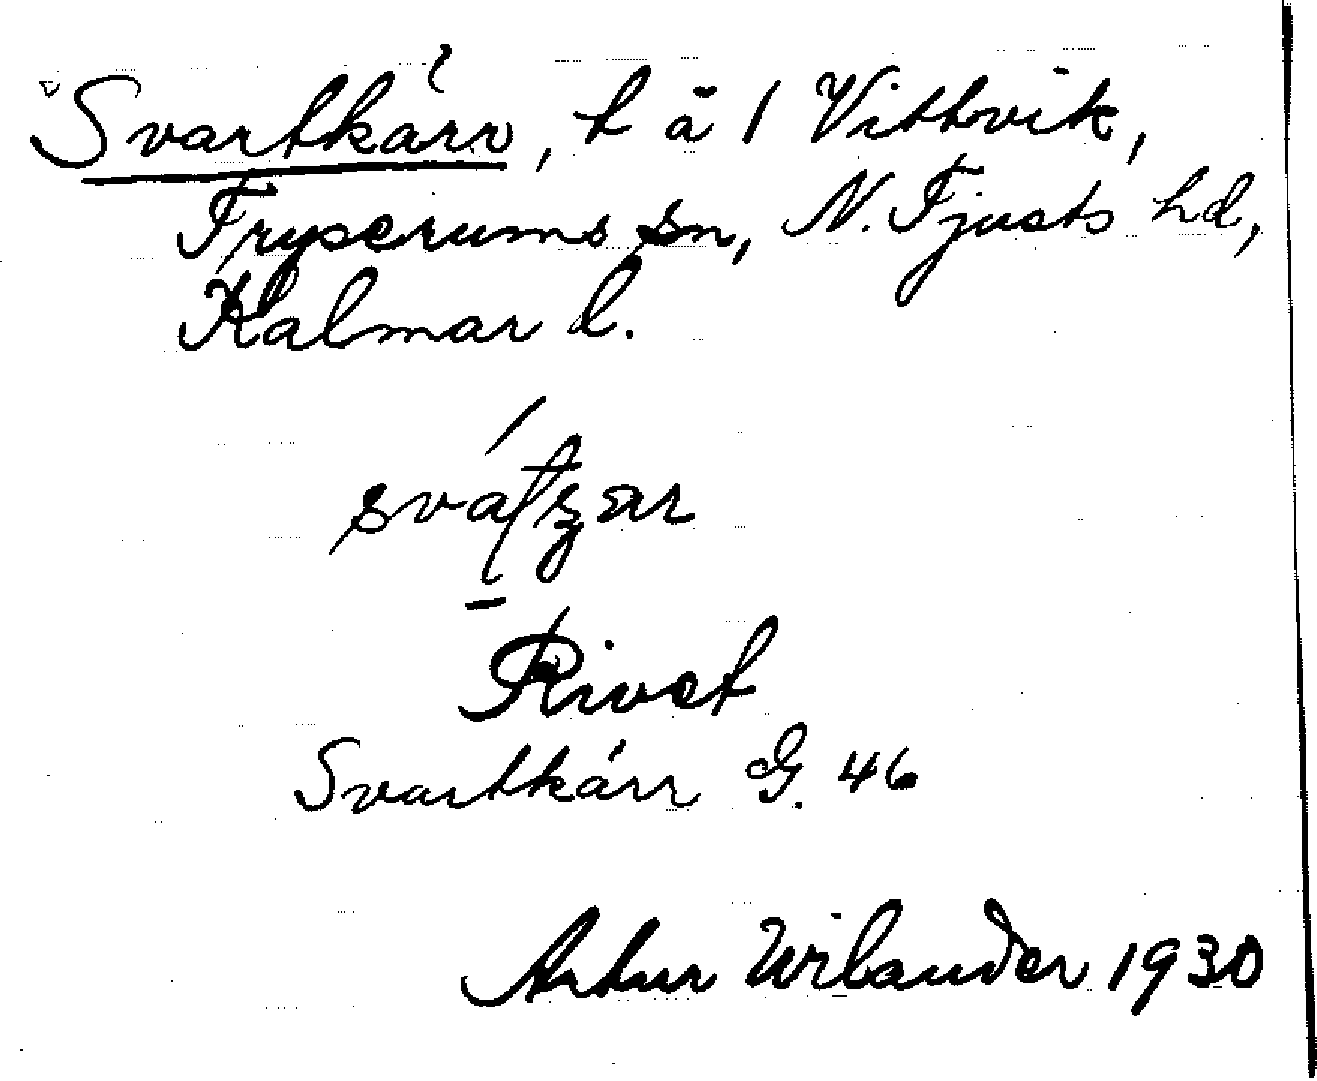 Svartkärr, t ä 1 Vittvik,
Tryserums sn, N. Tjusts hd,
Kalmar l.
Rivet
Svartkärr G. 46
Arthur Wilander 1930